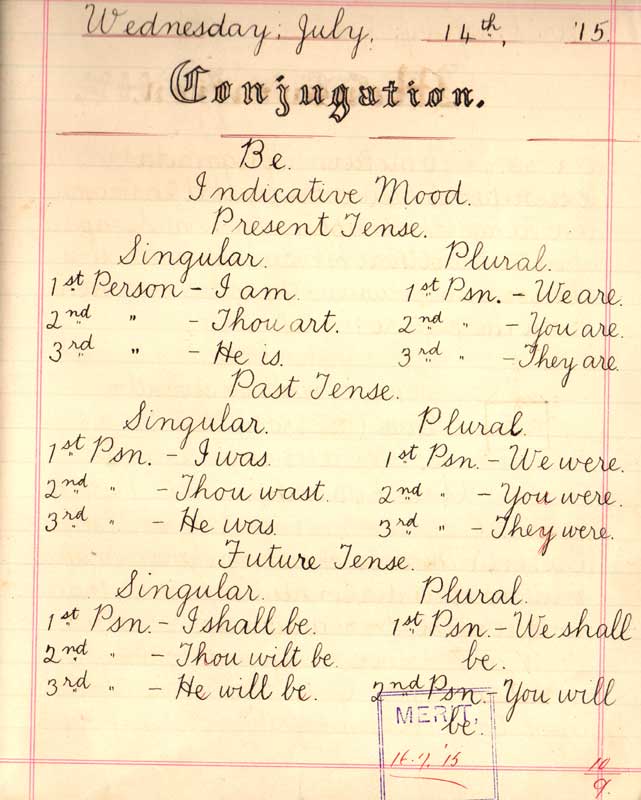 Wednesday, July. 14th, '15.
Conjugation.
Be.
Indicative Mood.
Present Tense.
Singular. Plural.
1st Person - I am. 1st Psn. - We are.
2nd " - Thou art. 2nd " - You are.
3rd " - He is. 3rd " - They are.
Past Tense.
Singular. Plural.
1st Psn. - I was. 1st Psn. - We were.
2nd " - Thou wast. 2nd " - You were.
3rd " - He was. 3rd " - They were.
Future Tense.
Singular. Plural.
1st Psn. - I shall be. 1st Psn. - We shall
2nd " - Thou wilt be. be.
3rd " - He will be. 2nd Psn. - You will
be.
MERIT,
16.7.'15
10
9.